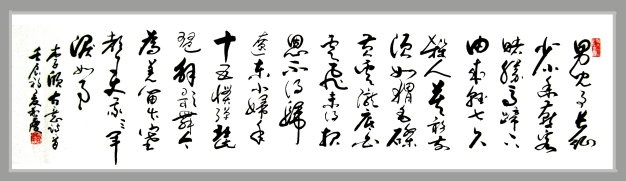 男兒事長征
少小幽燕客
賭勝馬蹄下
由來輕七尺
殺人莫敢前
須如蝟毛磔
黃雲隴底白
雲飛未得報
恩不得歸
遼東小婦年
十五慣彈琵
琶解歌舞今
為羌笛出塞
聲使我三軍
淚如雨
李頎古意詩
壬辰